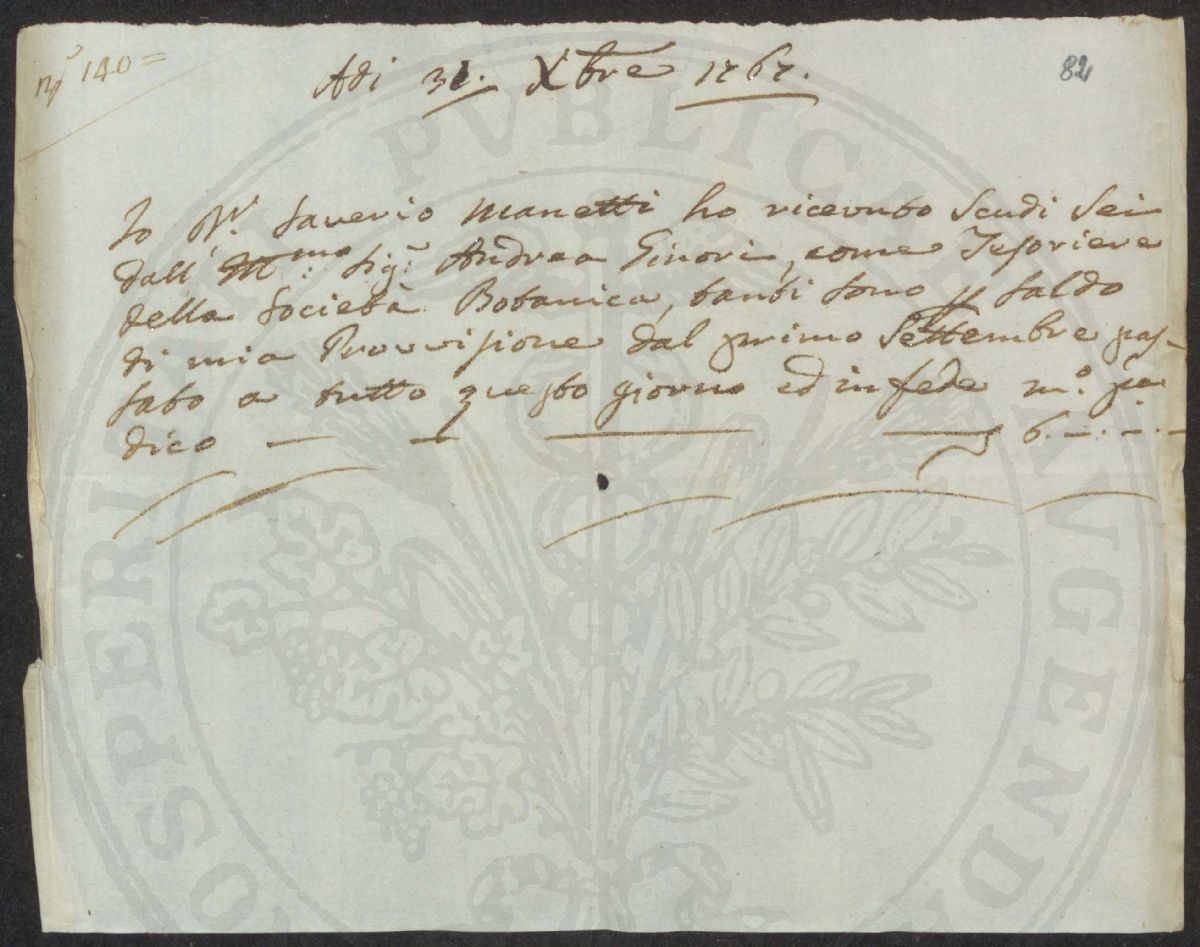 N.° 140 =
Adi 31. Xbre 1767.
82
Io Dr. Saverio Manetti ho ricevuto Scudi Sei
dall' Ill.mo Sig.r Andrea Ginori, come Tesoriere
della Società Botanica, tanti sono p saldo
di mia Provvisione dal primo Settembre pas-
sato a tutto questo giorno ed in fede m.o p.a
dico — — — — 6. —. —. —
PVBLICAE AVGENDA
PROSPERITATI